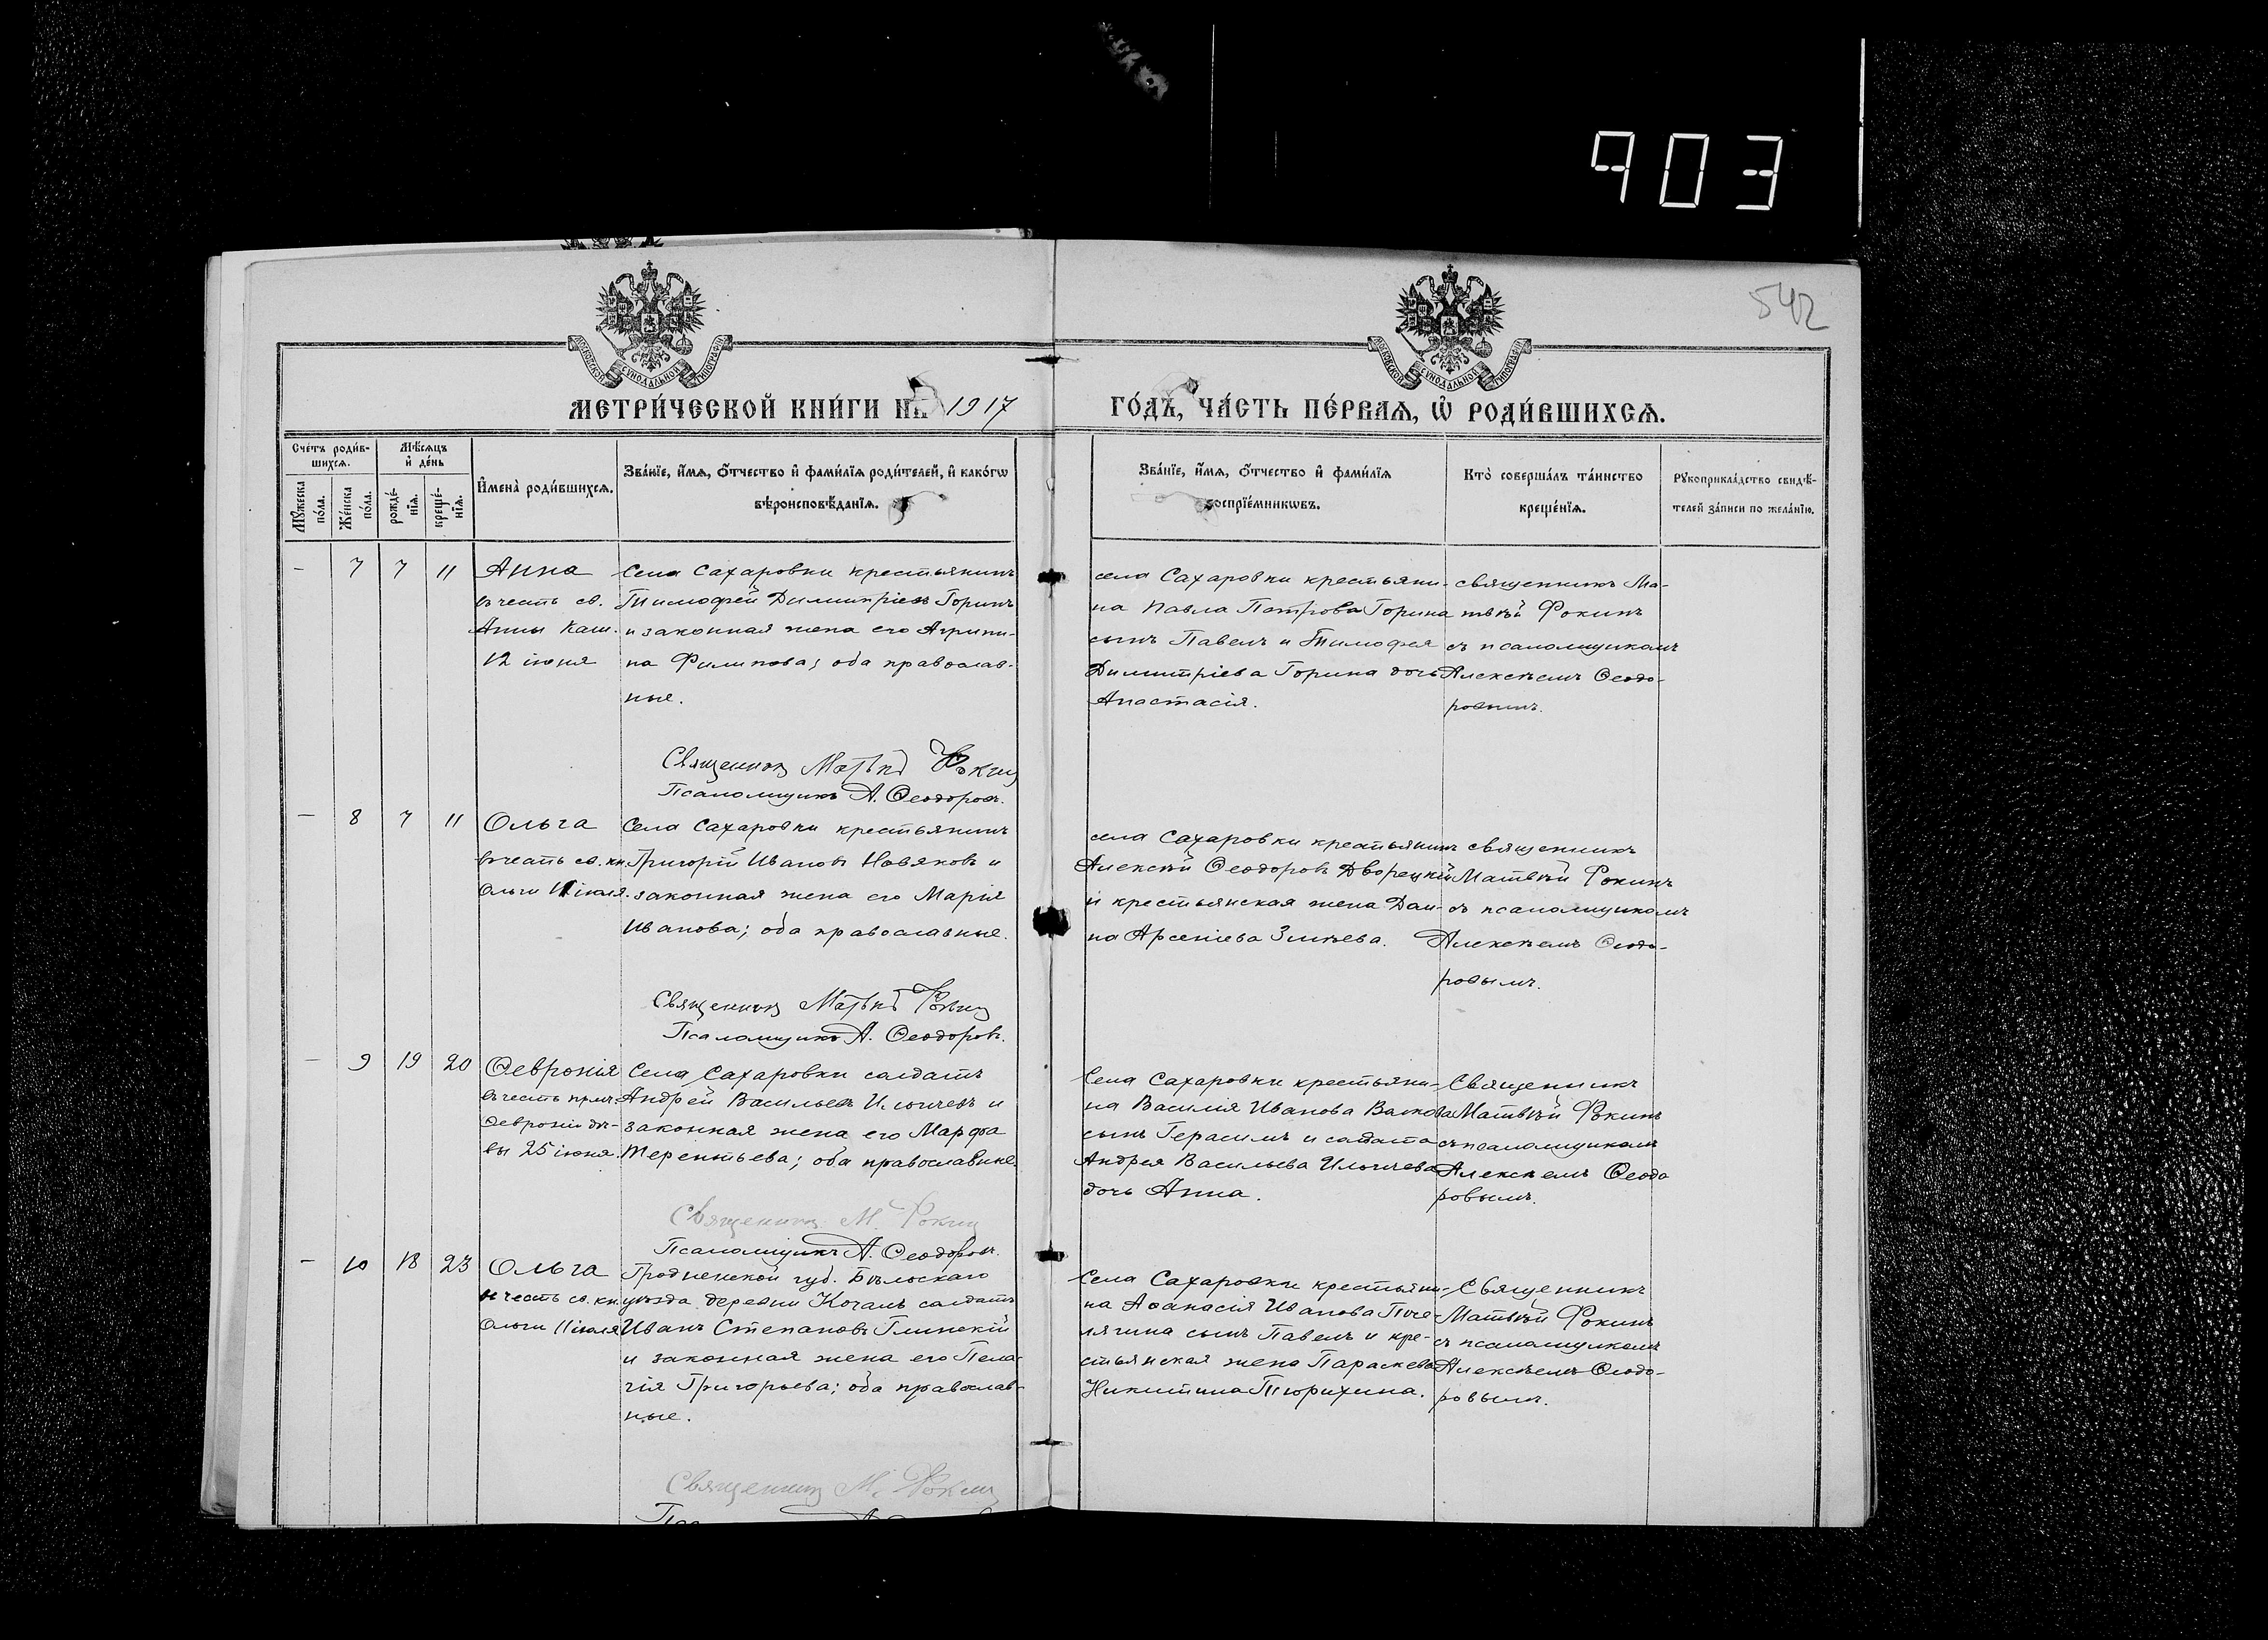 903
542
МОСКОВСКОЙ СУНОДАЛЬНОЙ ТИПОГРАФІИ
МОСКОВСКОЙ СУНОДАЛЬНОЙ ТИПОГРАФІИ
МЕТРИ́ЧЕСКОЙ КНИ́ГИ НА 1917
ГО́ДЪ, ЧА́СТЬ ПЕ́РВАѦ, Ѡ҆ РОДИ́ВШИХСѦ.
Сче́тъ роди́в-
шихсѧ.
Мѣ́сѧцъ
и҆ де́нь
Мꙋ́жеска
по́ла.
Же́нска
по́ла.
рожде́-
нїѧ.
креще́-
нїѧ.
И҆мена̀ роди́вшихсѧ.
Зва́нїе, и҆́мѧ, ѻ҆́тчество и҆ фами́лїѧ роди́телей, и҆ како́гѡ
вѣроисповѣ́данїѧ.
Зва́нїе, и҆́мѧ, ѻ҆́тчество и҆ фами́лїѧ
воспрїе́мникѡвъ.
Кто̀ соверша́лъ та́инство
креще́нїѧ.
Рꙋкоприкла́дство свидѣ́-
телей за́писи по жела́нїю.
- 7 7 11
Анна
въ честь св.
Анны Каш.
12 іюня
Села Сахаровки крестьянинъ
Тимофей Димитріевъ Горинъ
и законная жена его Агрипи-
на Филипова; оба православ-
ные.
Священникъ Матвѣй Фокинъ
Псаломщикъ А. Ѳеодоровъ.
села Сахаровки крестьяни-
на Павла Петрова Горина
сынъ Павелъ и Тимофея
Димитріева Горина дочь
Анастасія.
священникъ Ма-
твѣй Фокинъ
съ псаломщикомъ
Алексѣемъ Ѳеодо-
ровымъ.
- 8 7 11
Ольга
въ честь св. кн.
Ольги 11 іюля.
Села Сахаровки крестьянинъ
Григорій Ивановъ Новяковъ и
законная жена его Марія
Иванова; оба православные.
Священникъ Матвѣй Фокинъ
Псаломщикъ А. Ѳеодоровъ.
села Сахаровки крестьянинъ
Алексѣй Ѳеодоровъ Дворецкій
и крестьянская жена Даи-
на Арсеніева Змѣева.
священникъ
Матвѣй Фокинъ
съ псаломщикомъ
Алексѣемъ Ѳеодо-
ровымъ.
- 9 19 20
Ѳевронія
въ честь прмч.
Ѳевроніи дѣ-
вы 25 іюня.
Села Сахаровки солдатъ
Андрей Васильевъ Ильичевъ и
законная жена его Марфа
Терентьева; оба православные.
Священникъ М. Фокинъ
Псаломщикъ А. Ѳеодоровъ.
Села Сахаровки крестьяни-
на Василія Иванова Волкова
сынъ Герасимъ и солдата
Андрея Васильева Ильичева
дочь Анна.
Священникъ
Матвѣй Фокинъ
съ псаломщикомъ
Алексѣемъ Ѳеодо
ровымъ.
- 10 18 23
Ольга
въ честь св. кн.
Ольги 11 іюля
Гродненской губ. Бѣльскаго
уѣзда деревни Кочамъ солдатъ
Иванъ Степановъ Глинскій
и законная жена его Пела-
гія Григорьева; оба православ-
ные.
Священникъ М. Фокинъ
Села Сахаровки крестьяни-
на Аѳанасія Иванова Поче-
лягина сынъ Павелъ и кре-
стьянская жена Параскева
Никитина Тюрихина.
Священникъ
Матвѣй Фокинъ
съ псаломщикомъ
Алексѣемъ Ѳеодо-
ровымъ.